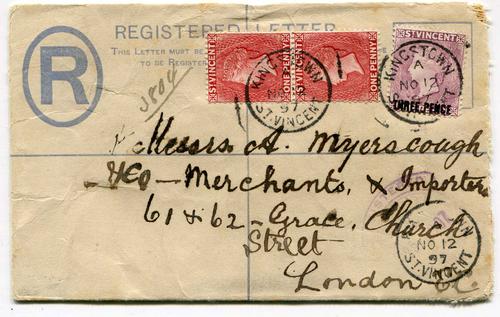 REGISTERED LETTER
THIS LETTER MUST BE
TO BE REGISTER
R
3804
ST VINCENT
ONE PENNY
ST VINCENT
ONE PENNY
ST VINCENT
THREE PENCE
KINGSTOWN
NO 12
97
ST. VINCENT
KINGSTOWN
A
NO 12
Messrs A. Myerscough
& Co - Merchants, & Importers
61 & 62 - Grace Church
Street
London E.C.
A
NO 12
97
ST. VINCENT